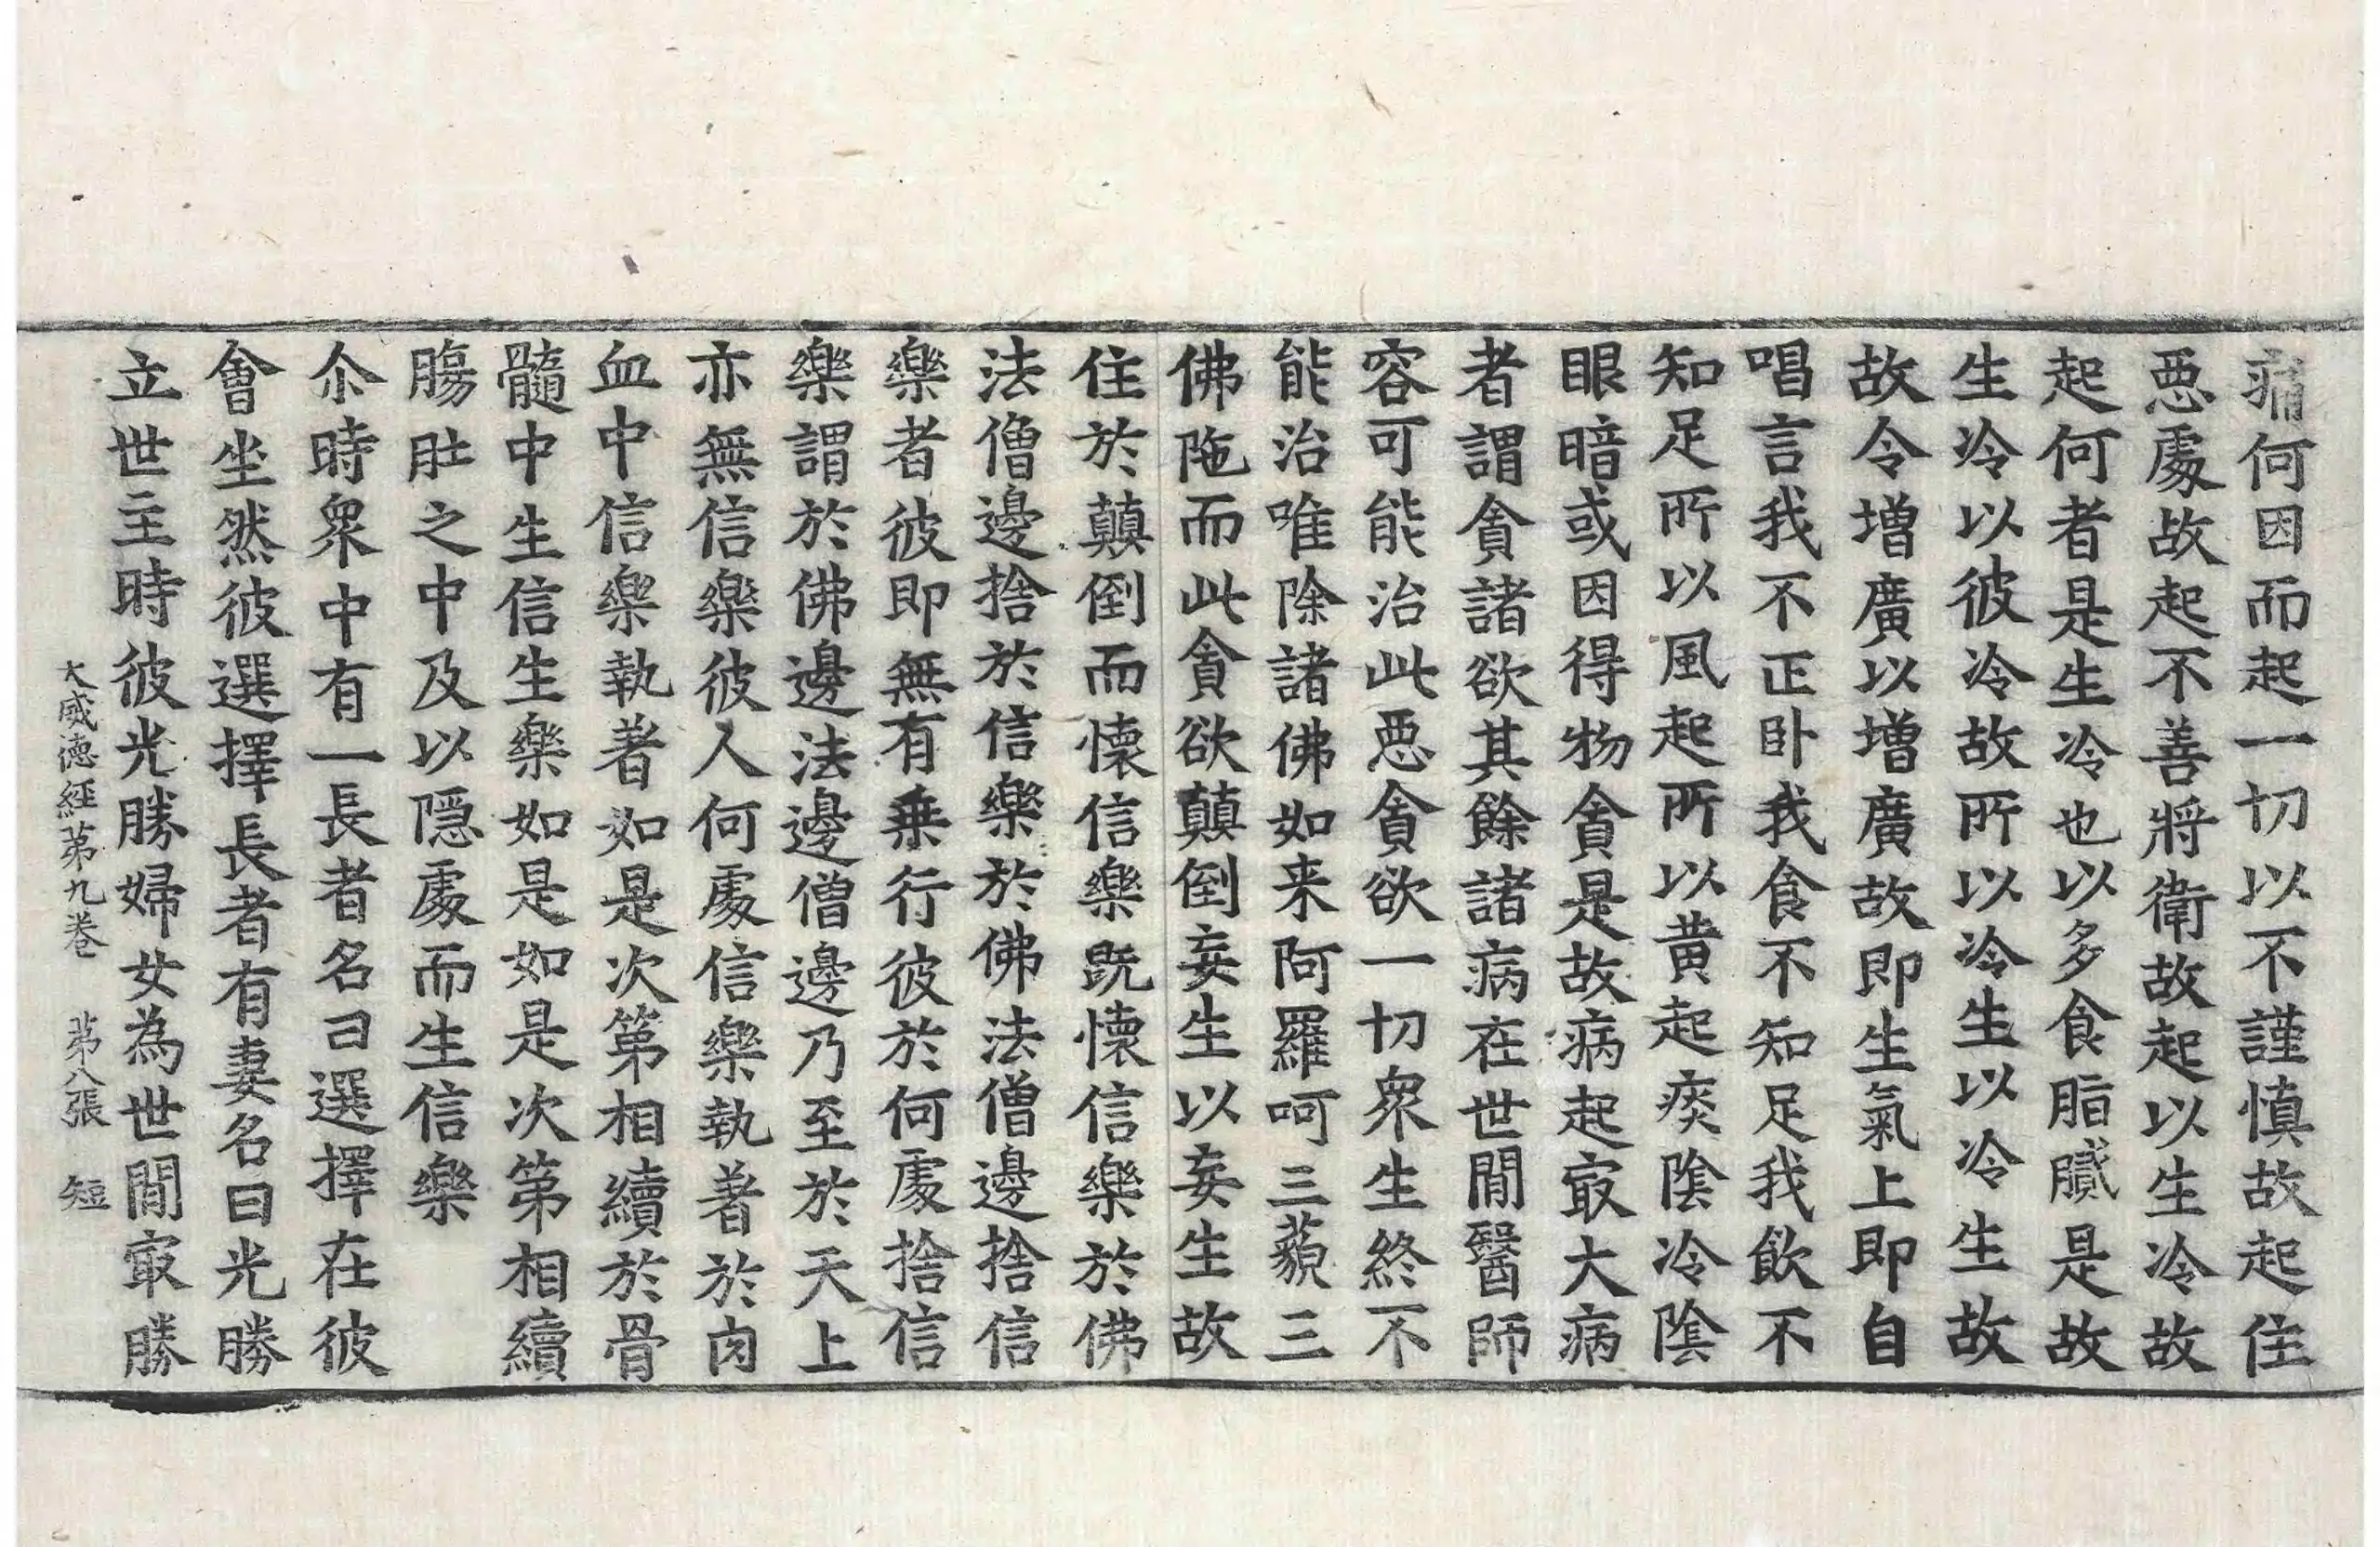 痛何因而起一切以不謹慎故起住
惡處故起不善將衛故起以生冷故
起何者是生冷也以多食脂膩是故
生冷以彼冷故所以冷生以冷生故
故令增廣以增廣故即生氣上即自
唱言我不正卧我食不知足我飲不
知足所以風起所以黄起痰陰冷陰
眼暗或因得物貪是故病起㝡大病
者謂貪諸欲其餘諸病在世閒醫師
容可能治此惡貪欲一切衆生終不
能治唯除諸佛如来阿羅呵三藐三
佛陁而此貪欲顛倒妄生以妄生故
住於顛倒而懷信樂既懷信樂於佛
法僧邊捨於信樂於佛法僧邊捨信
樂者彼即無有乗行彼於何處捨信
樂謂於佛邊法邊僧邊乃至於天上
亦無信樂彼人何處信樂執著於肉
血中信樂執著如是次第相續於骨
髓中生信生樂如是如是次第相續
膓肚之中及以隠處而生信樂
尒時衆中有一長者名曰選擇在彼
會坐然彼選擇長者有妻名曰光勝
立世主時彼光勝婦女為世閒㝡勝
大威德経苐九卷 苐八張 短